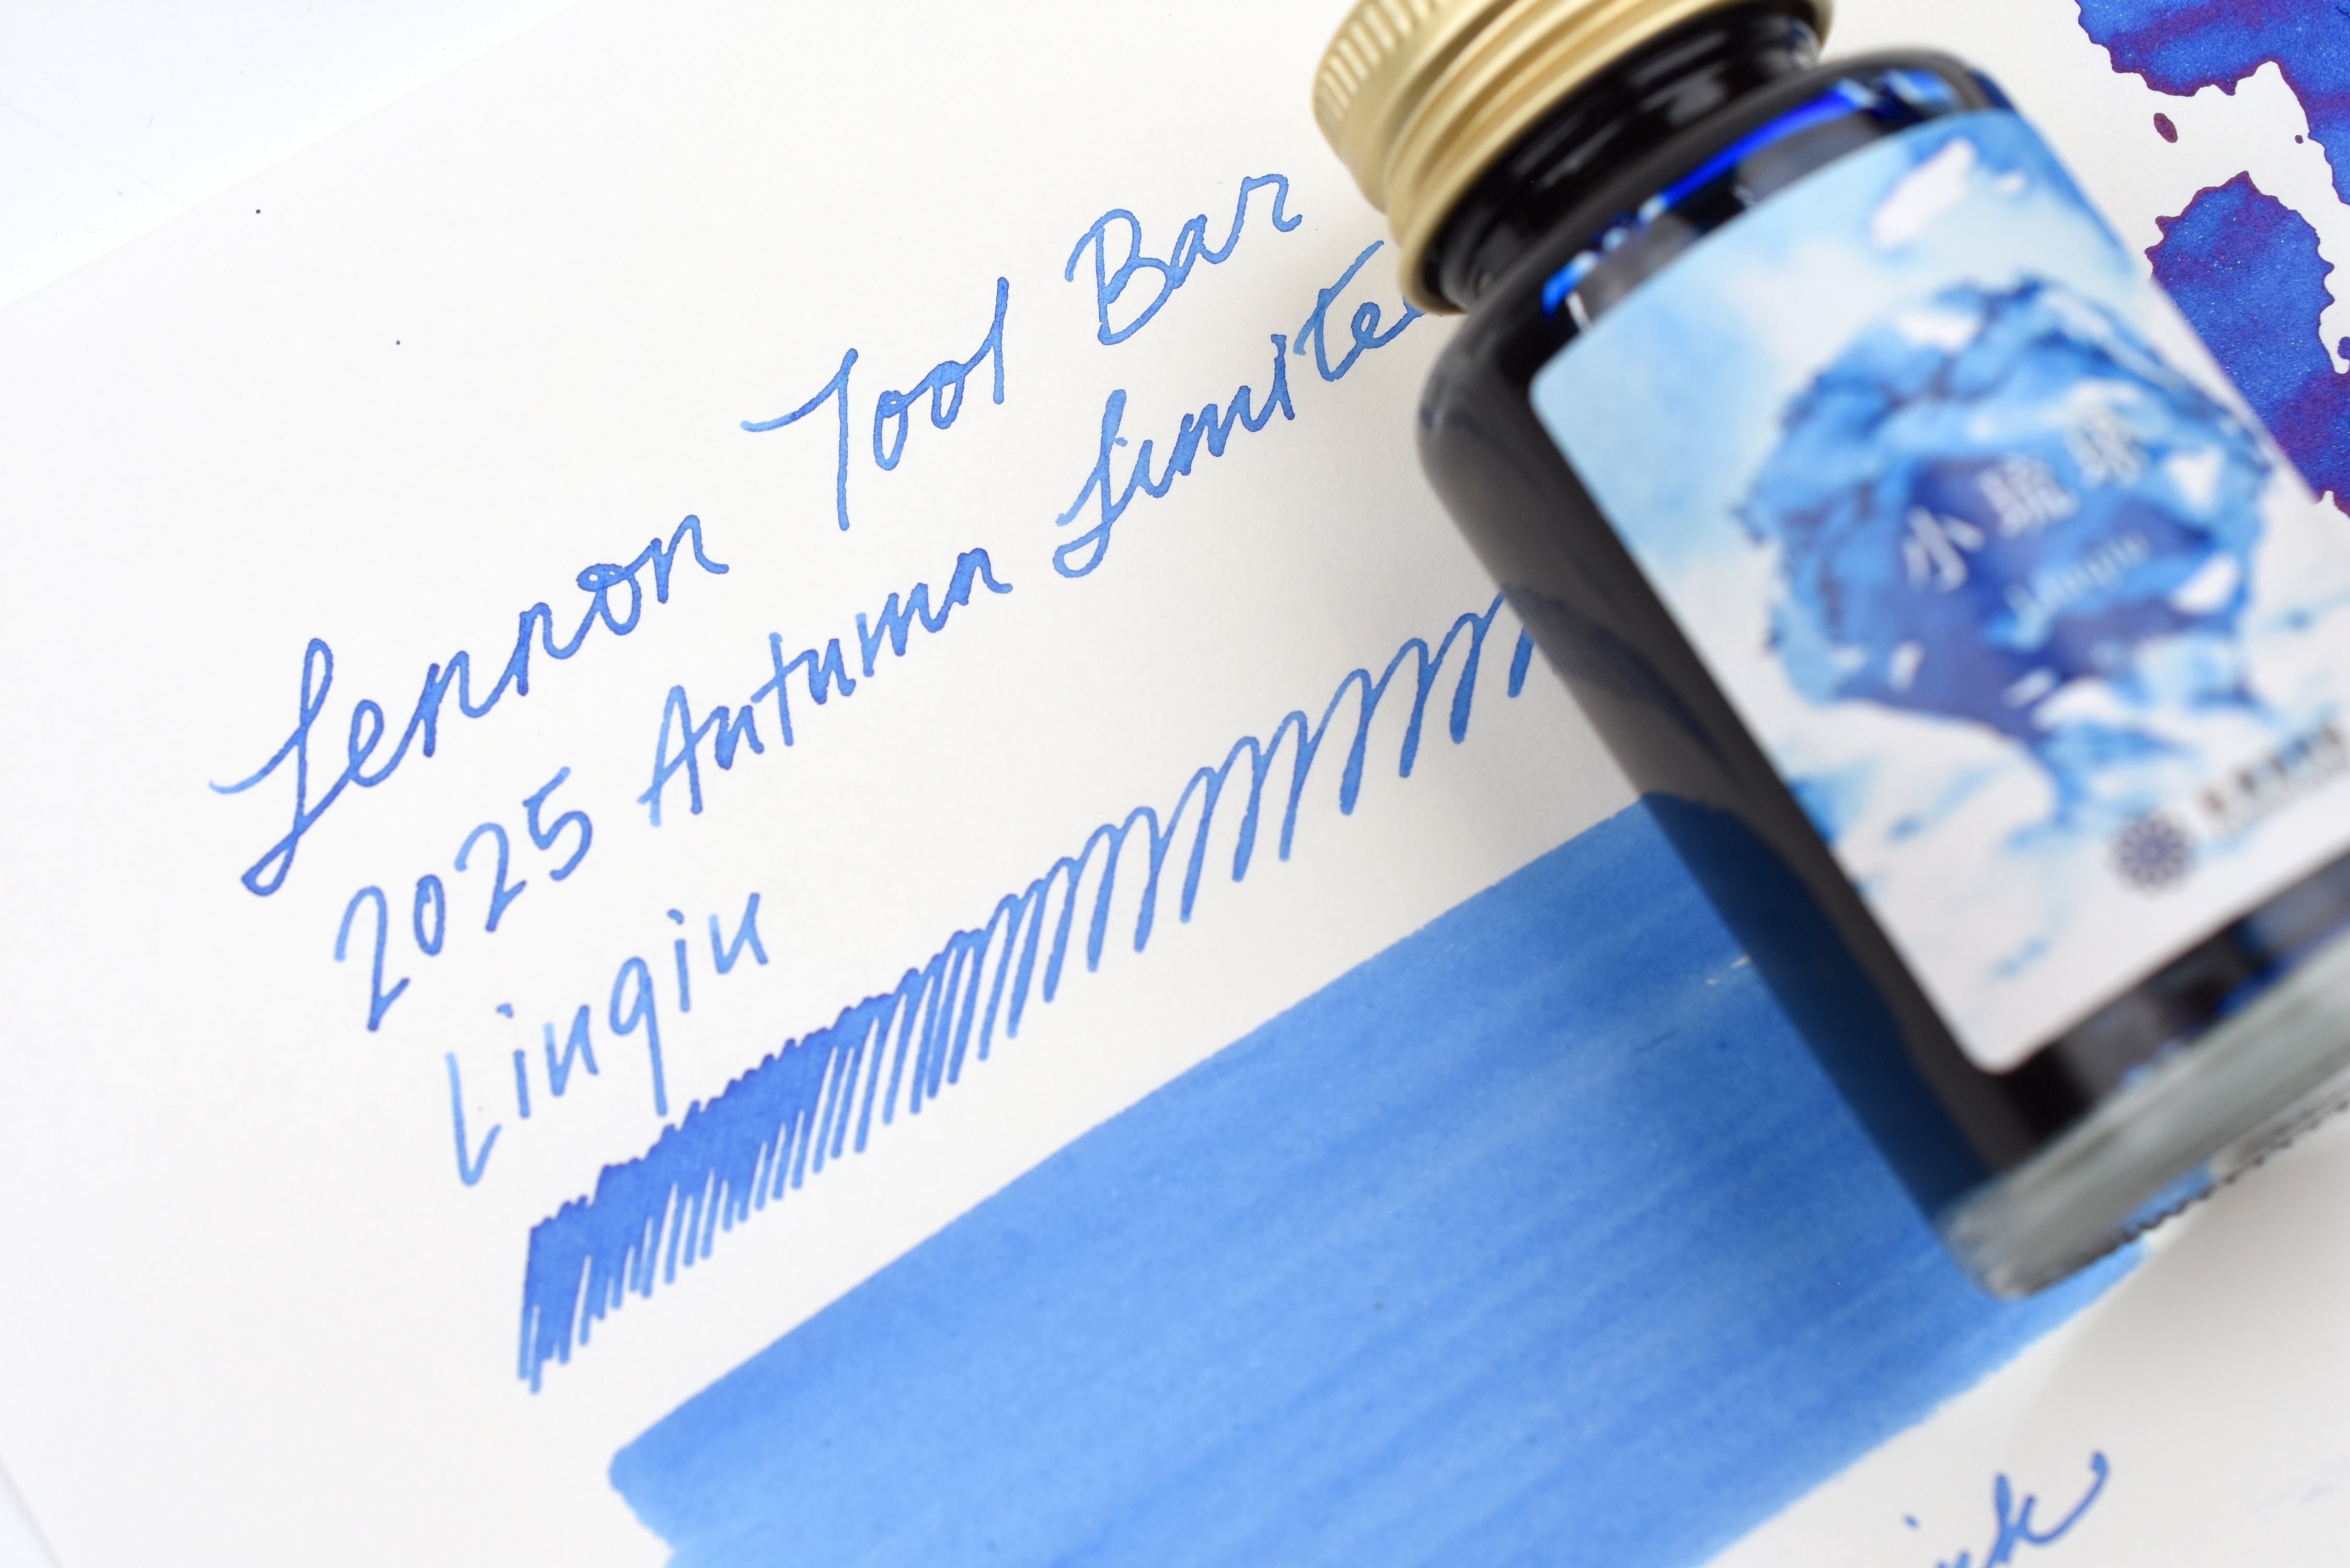 Lennon Tool Bar
2025 Autumn Limite
Liuqiu
小琉球
Liuqiu